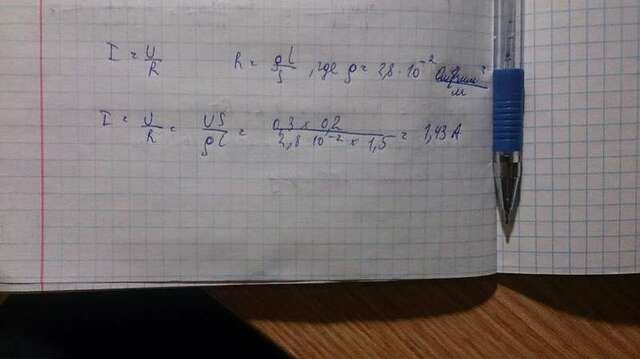 I = U/R R = ρl/S, где ρ = 2,8 · 10⁻² Ом·мм²/м
I = U/R = US/ρl = 0,3 × 0,2 / 2,8 · 10⁻² × 1,5 = 1,43 А